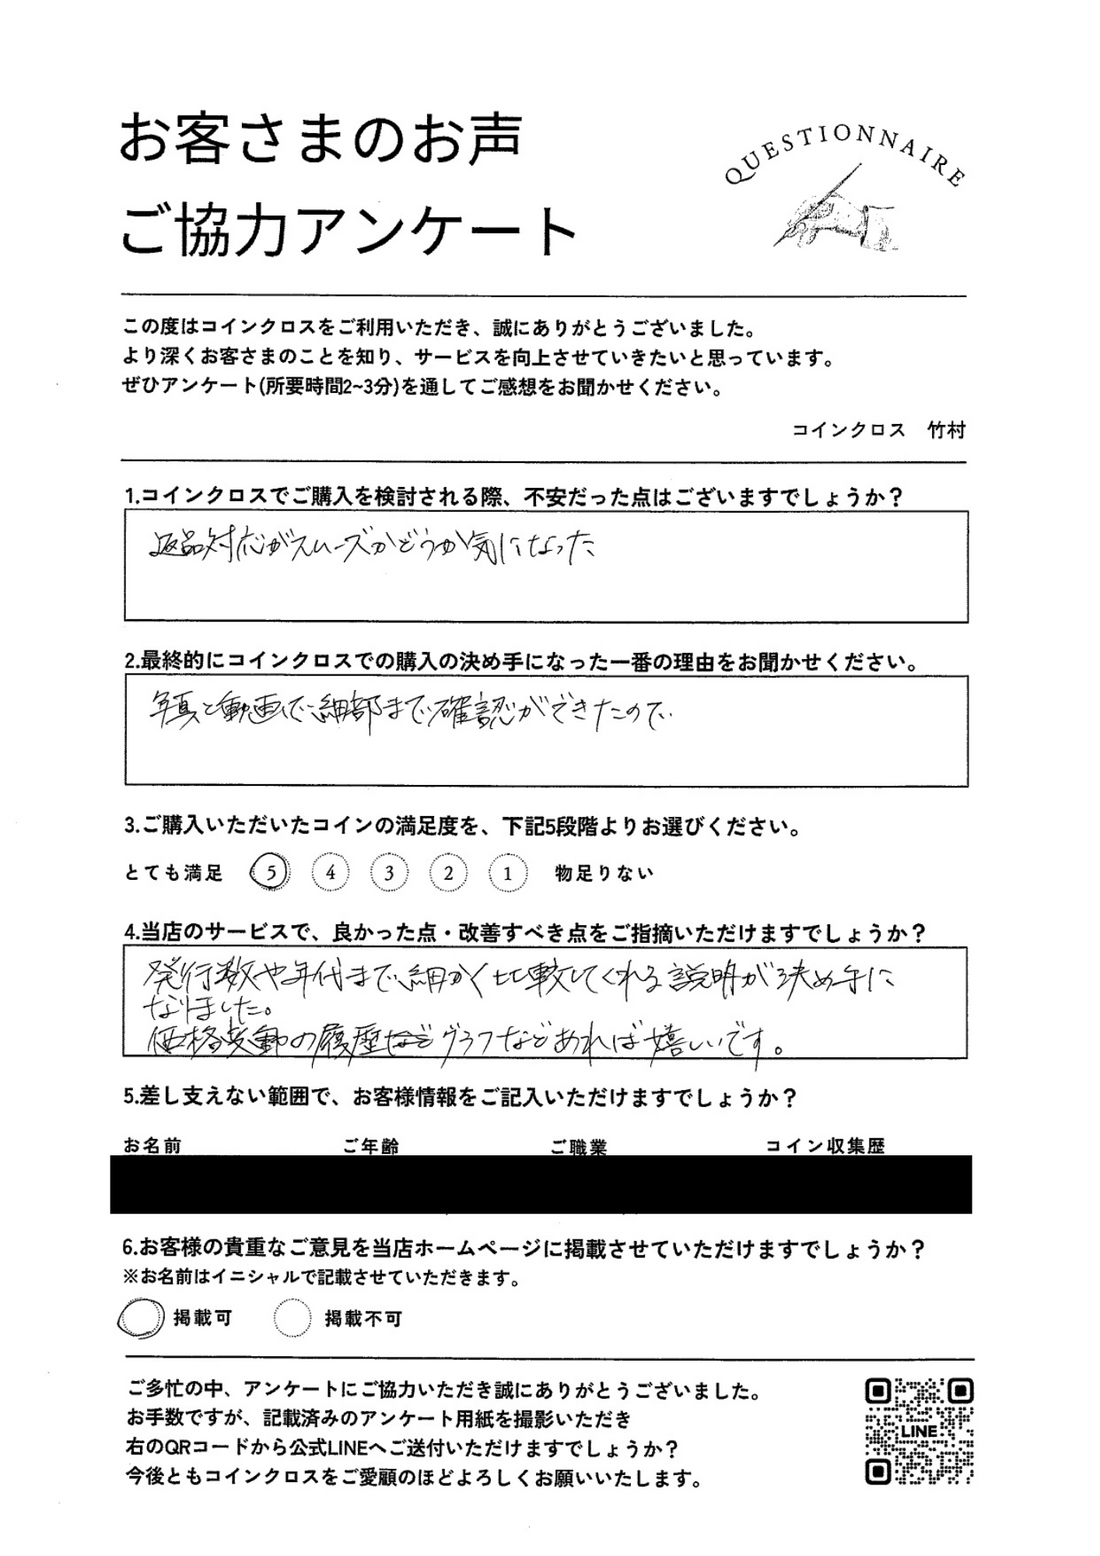 お客さまのお声
ご協力アンケート
QUESTIONNAIRE
この度はコインクロスをご利用いただき、誠にありがとうございました。
より深くお客さまのことを知り、サービスを向上させていきたいと思っています。
ぜひアンケート(所要時間2~3分)を通してご感想をお聞かせください。
コインクロス 竹村
1.コインクロスでご購入を検討される際、不安だった点はございますでしょうか？
返品対応がスムーズかどうか気になった
2.最終的にコインクロスでの購入の決め手になった一番の理由をお聞かせください。
写真と動画で細部まで確認ができたので
3.ご購入いただいたコインの満足度を、下記5段階よりお選びください。
とても満足 5 4 3 2 1 物足りない
4.当店のサービスで、良かった点・改善すべき点をご指摘いただけますでしょうか？
発行数や年代まで細かく比較してくれる説明が決め手に
なりました。
価格変動の履歴などグラフなどあれば嬉しいです。
5.差し支えない範囲で、お客様情報をご記入いただけますでしょうか？
お名前 ご年齢 ご職業 コイン収集歴
6.お客様の貴重なご意見を当店ホームページに掲載させていただけますでしょうか？
※お名前はイニシャルで記載させていただきます。
掲載可 掲載不可
ご多忙の中、アンケートにご協力いただき誠にありがとうございました。
お手数ですが、記載済みのアンケート用紙を撮影いただき
右のQRコードから公式LINEへご送付いただけますでしょうか？
今後ともコインクロスをご愛顧のほどよろしくお願いいたします。
LINE